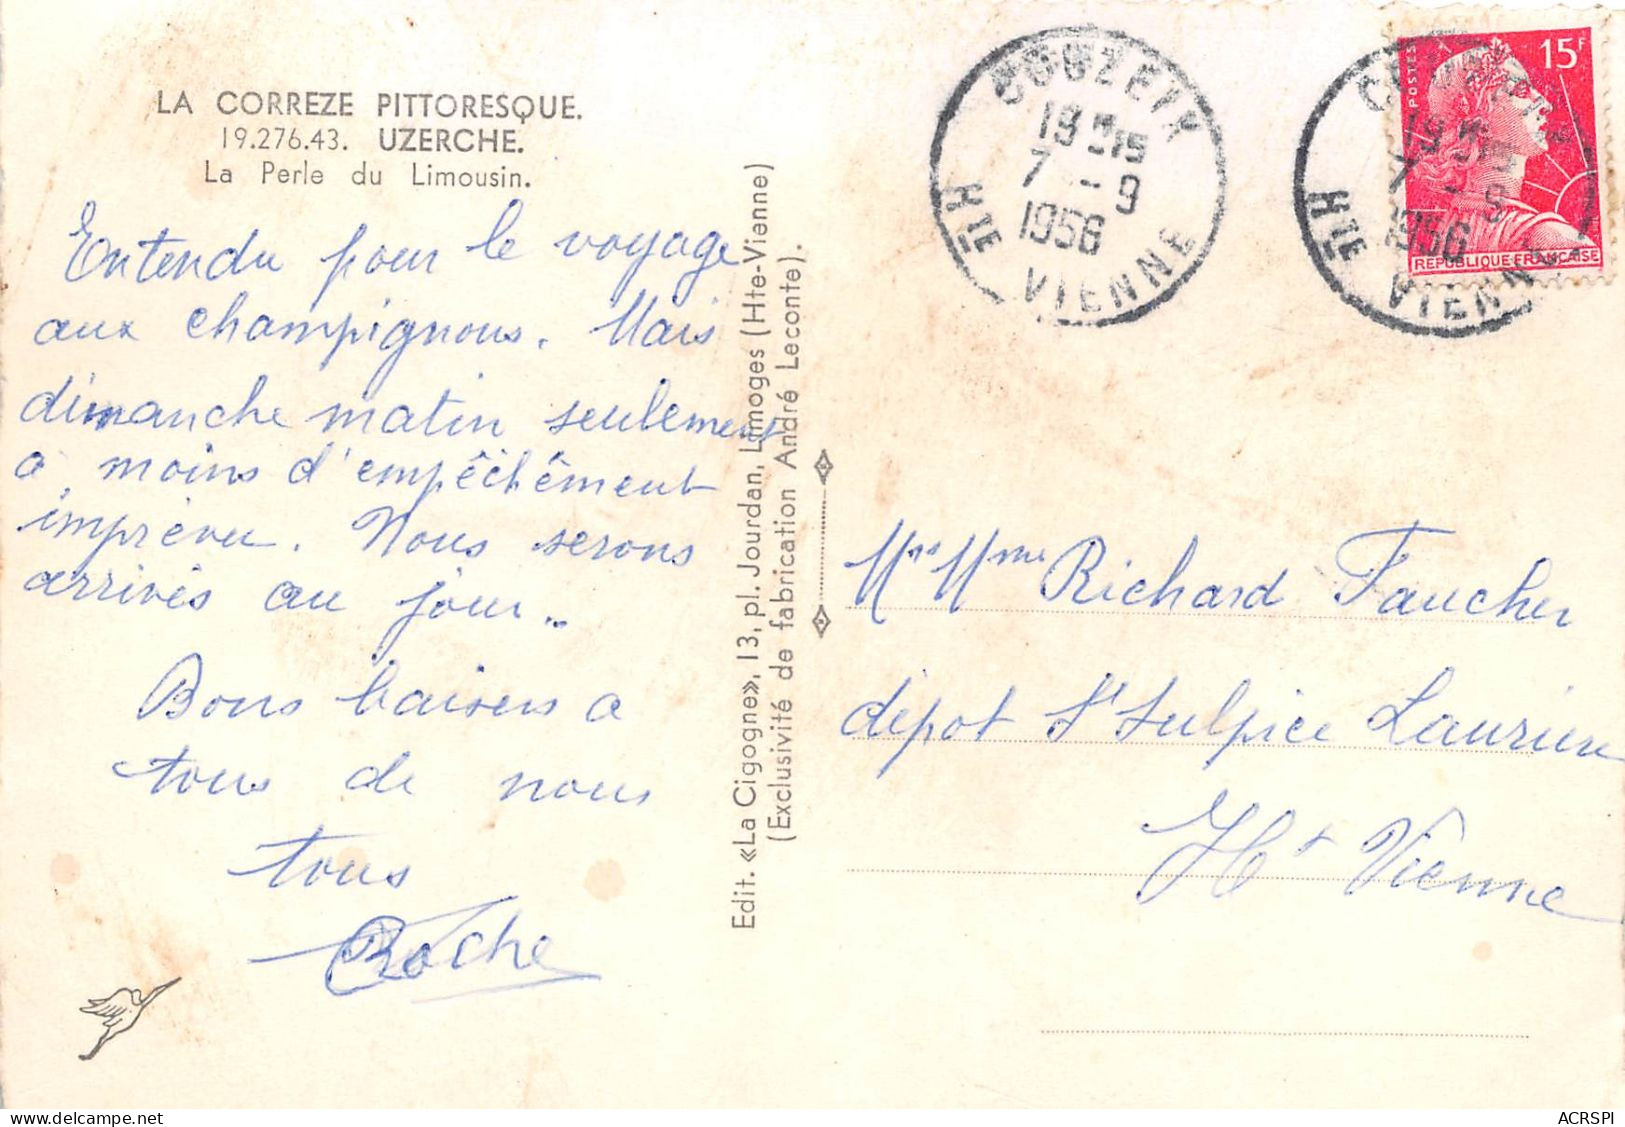 LA CORREZE PITTORESQUE.
19.276.43. UZERCHE.
La Perle du Limousin.
Entendu pour le voyage
aux champignons. Mais
dimanche matin seulement
à moins d'empêchêment
imprévu. Nous serons
arrivés au jour..
Bons baisers a
tous de nous
tous
Roche
Edit. «La Cigogne», 13, pl. Jourdan, Limoges (Hte-Vienne)
(Exclusivité de fabrication André Leconte).
COUZEIX
19 H15
7 - 9
1956
Hte VIENNE
COUZEIX
19 H15
7 - 9
1956
Hte VIENNE
POSTES
15F
REPUBLIQUE FRANÇAISE
Mr Mme Richard Faucher
dépot St Sulpice Laurière
Ht Vienne
ACRSPI